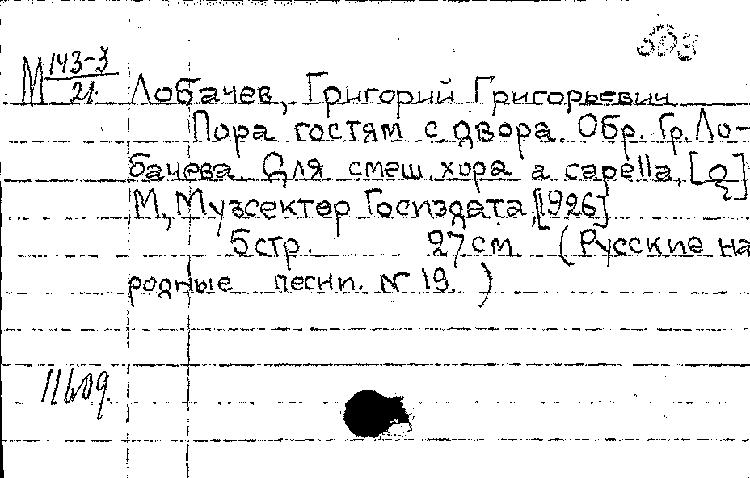 503
М 143-3
21.
Лобачев, Григорий Григорьевич
Пора гостям с двора. Обр. Гр. Ло-
бачева. Для смеш. хора a capella, [д]
М, Музсектор Госиздата, [1926]
5 стр. 27 см. (Русские на
родные песни. № 19. )
11609.